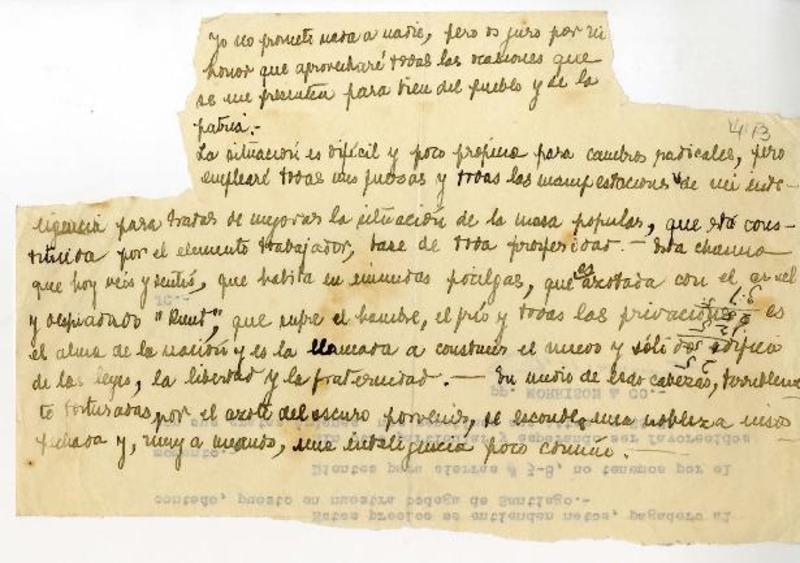 Yo no prometí nada a nadie, pero os juro por mi
honor que aprovecharé todas las ocasiones que
se me presenten para bien del pueblo y de la
patria.-
413
La situación es difícil y poco propicia para cambios radicales, pero
emplearé todas mis fuerzas y todas las manifestaciones de mi inte-
ligencia para tratar de mejorar la situación de la masa popular, que está cons-
tituida por el elemento trabajador, base de toda prosperidad. — Esta chusma
que hoy veis y sentís, que habita en inmundas pocilgas, que es azotada con el cruel
y despiadado "Knut", que sufre el hambre, el frío y todas las privaciones es
el alma de la nación y es la llamada a construir el nuevo y sólido edificio
de las leyes, la libertad y la fraternidad. — En medio de esas cabezas, terriblemen
te torturadas, por el azote del oscuro porvenir, se esconde una nobleza insos
pechada y, muy a menudo, una inteligencia poco común. —
pp. MORRISON & CO.-
ser favorecidos
momento.
Dientes para sierras # 3-8, no tenemos por el
contado, puesto en nuestra bodega de Santiago.-
Estos precios se entienden netos, pagadero al